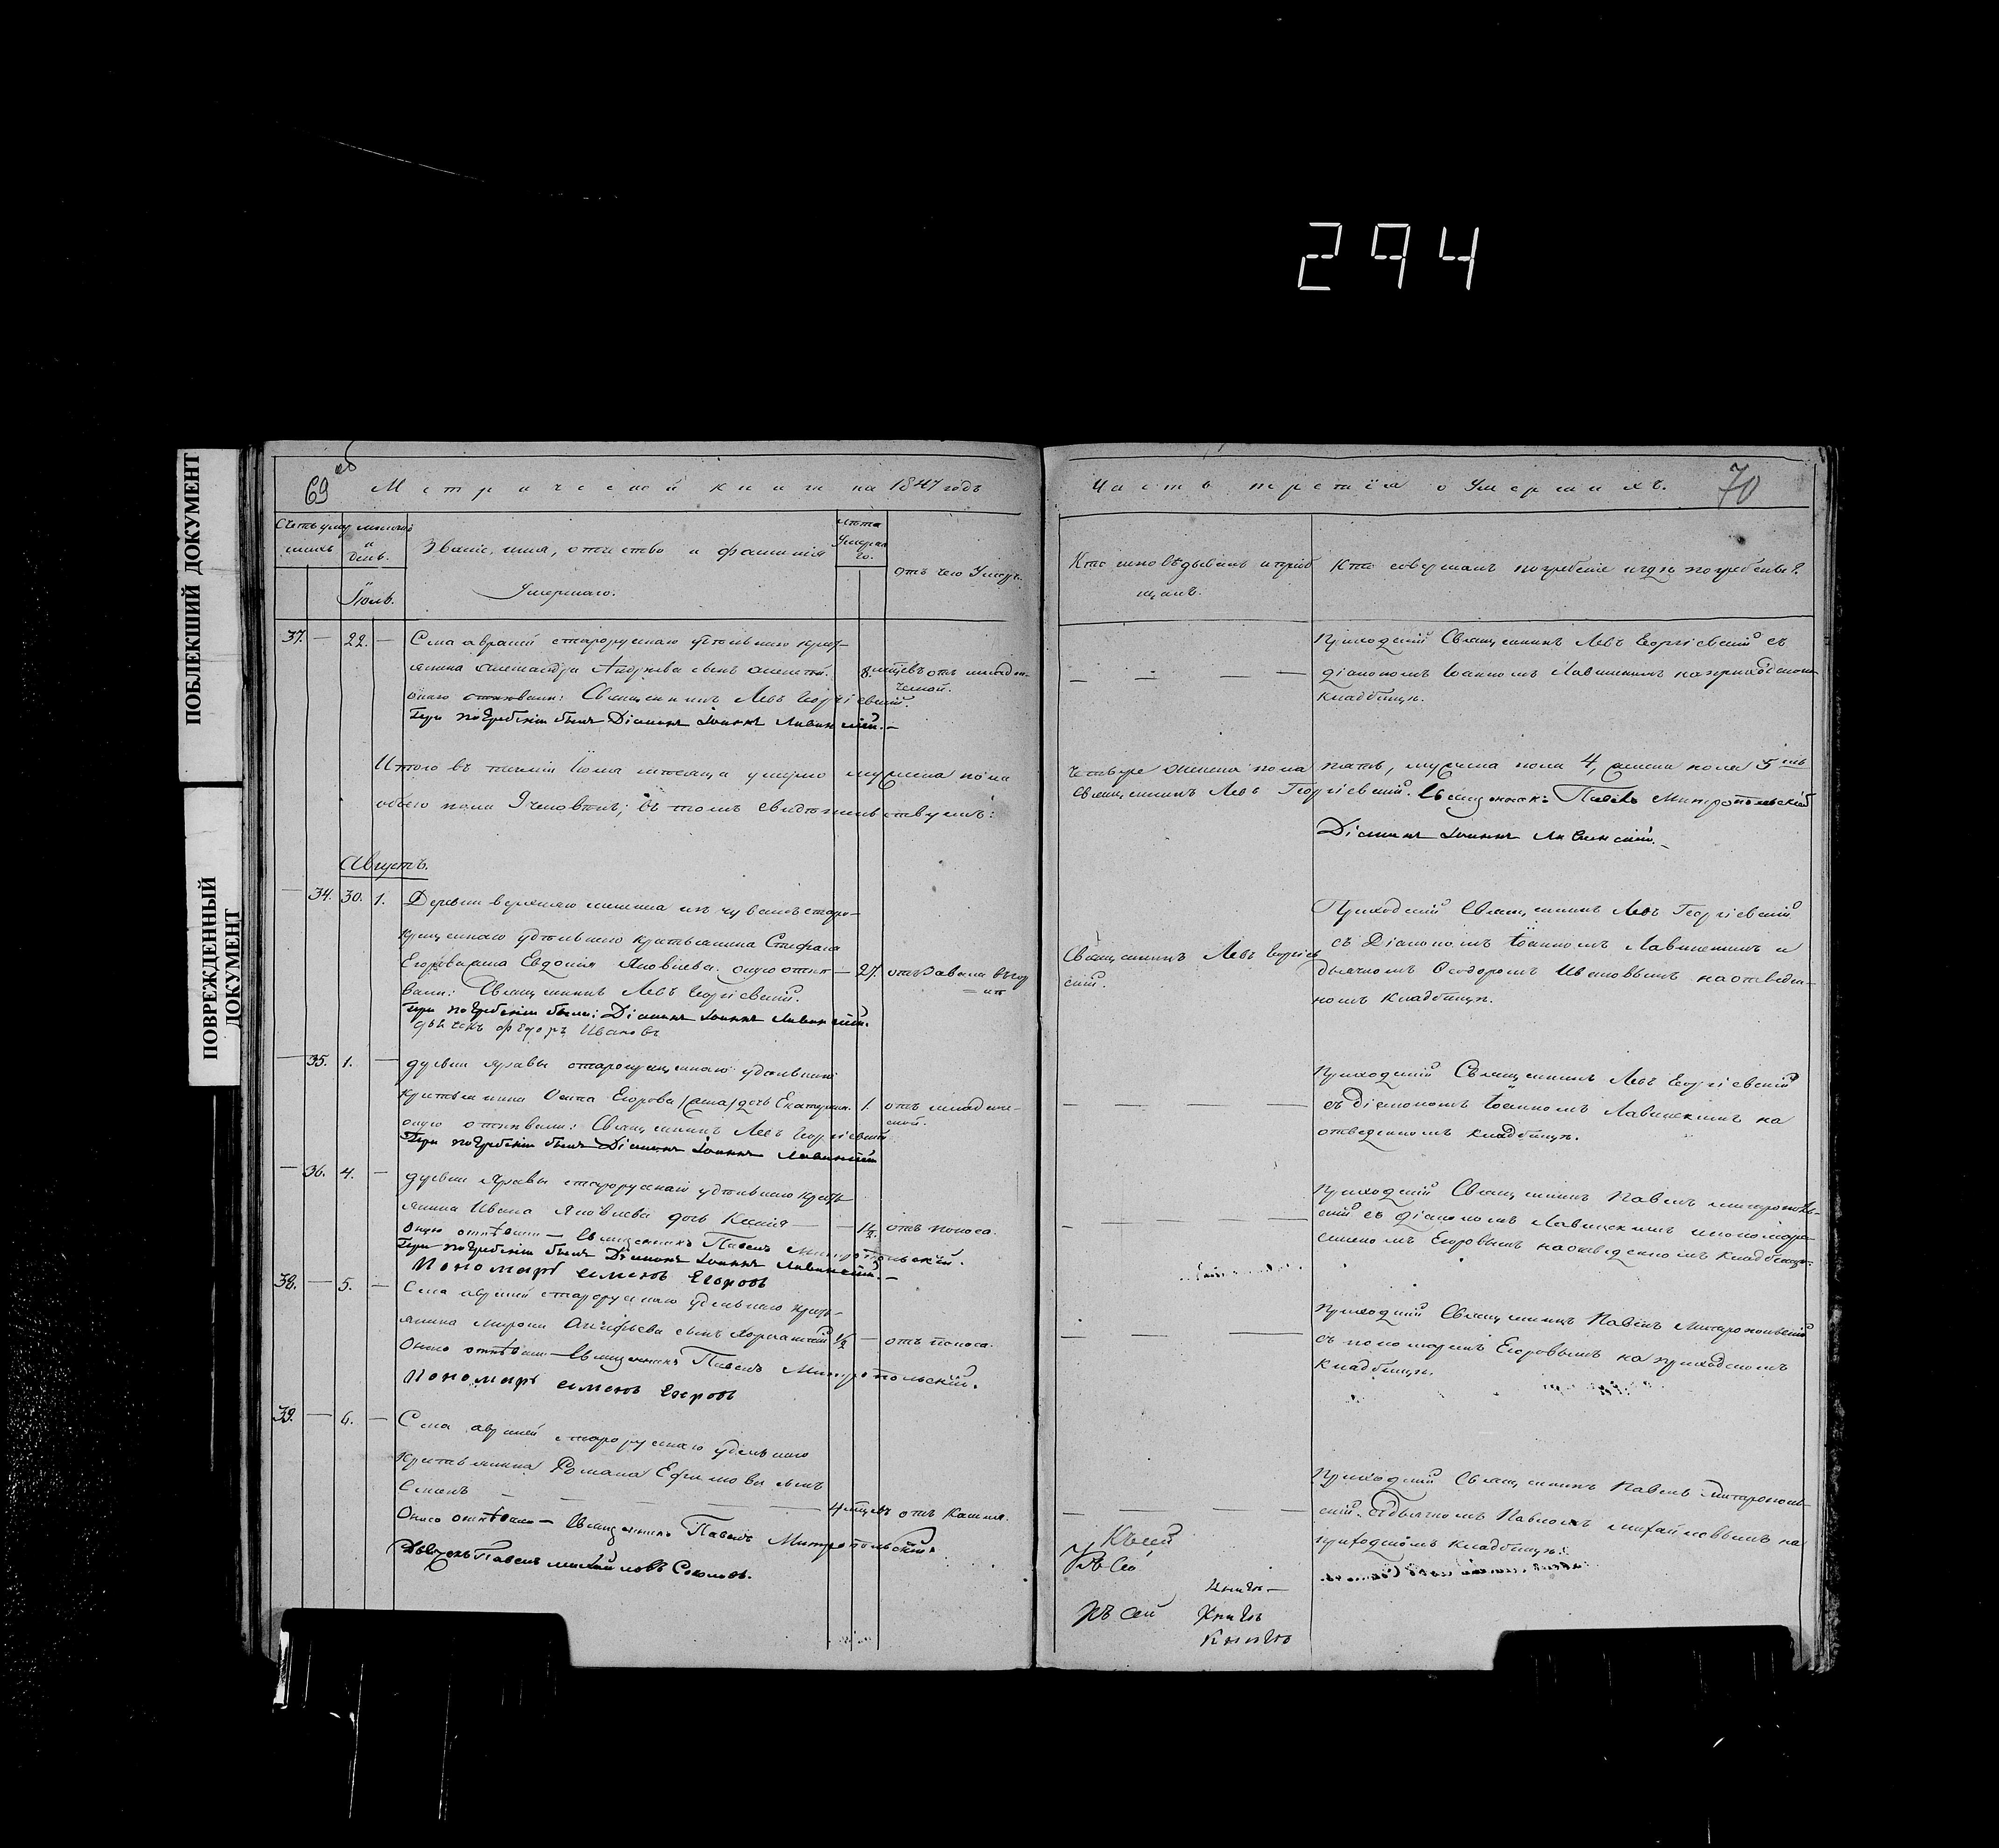 294
ПОБЛЕКШИЙ ДОКУМЕНТ
ПОВРЕЖДЕННЫЙ
ДОКУМЕНТ
69 об
Метрической книги на 1847 годъ
Званіе, имя, отчество и фамилія
Умершаго.
лѣта
Умершаго.
отъ чего Умеръ.
Іюль.
37. — 22. —
Села старорускаго удѣльнаго крес-
янина Александра сынъ
8 мѣсцевъ отъ младен-
ческой.
онаго отпѣвали: Священникъ Левъ Георгіевскій.
При погребеніи былъ Діаконъ Іоаннъ Лавинскій.—
Итого въ теченіи Іюля мѣсяца умерло мужеска пола
обоего пола 9 человѣкъ; въ томъ свидѣтельствуемъ:
Августъ.
— 34. 30. 1.
Деревни старо-
крещеннаго удѣльнаго крестьянина Стефана
Егорова жена Евдокія Яковлева. оную отпѣ — 27.
вали: Священникъ Левъ Георгіевскій.
При погребеніи были: Діаконъ Іоаннъ Лавинскій.
дьячекъ Ѳедоръ Ивановъ
— 35. 1. —
дѣрвни старокрещеннаго удѣльнаго
крестьянина Осипа Егорова дочь Екатерина. 1. отъ младенче-
ской.
оную отпѣвали: Священникъ Левъ Георгіевскій
При погребеніи былъ Діаконъ Іоаннъ Лавинскій
— 36. 4. —
старорускаго удѣльнаго крест-
янина Ивана Яковлева дочь Ксенія — отъ поноса.
Оную отпѣвали — Священникъ Павелъ Митропольскій.
При погребеніи былъ Діаконъ Іоаннъ Лавинскій.—
Пономарь Семенъ Егоровъ
38. — 5. —
Села старорускаго удѣльнаго крест-
янина Мирона сынъ 1/2 — отъ поноса.
Онаго отпѣвали — Священникъ Павелъ Митропольскій.
Пономарь Семенъ Егоровъ
39. — 6. —
Села старорускаго удѣльнаго
крестьянина Романа Ефимова сынъ
Семенъ — — — — 4 мѣсцевъ отъ кашля.
Онаго отпѣвали — Священникъ Павелъ Митропольскій.
Дьячекъ Павелъ Михайловъ Соколовъ.
Часть третія о Умершихъ.
70
Кто исповѣдывалъ и пріоб
щалъ.
Кто совершалъ погребеніе и гдѣ погребены?
Приходскій Священникъ Левъ Георгіевскій съ
діакономъ Іоанномъ Лавинскимъ на приходскомъ
кладбищѣ.
четыре женска пола пять, мужеска пола 4, женска пола 5 ть
священникъ Левъ Георгіевскій. Священникъ: Павелъ Митропольскій
Діаконъ Іоаннъ Лавинскій.—
Священникъ Левъ Георгіев
скій.
Приходскій Священникъ Левъ Георгіевскій
съ Діакономъ Іоанномъ Лавинскимъ и
дьячкомъ Ѳеодоромъ Ивановымъ на отведен-
номъ кладбищѣ.
Приходскій Священникъ Левъ Георгіевскій
съ діакономъ Іоанномъ Лавинскимъ на
отведенномъ кладбищѣ.
Приходскій Священникъ Павелъ Митрополь-
скій съ діакономъ Лавинскимъ и пономаремъ
Семеномъ Егоровымъ на отведенномъ кладбищѣ.
Приходскій Священникъ Павелъ Митропольскій
съ пономаремъ Егоровымъ на приходскомъ
кладбищѣ.
Приходскій Священникъ Павелъ Митрополь-
скій съ дьячкомъ Павломъ Михайловымъ на
приходскомъ кладбищѣ.
Къ сей
Къ сей
Книгѣ
Къ сей Книгѣ
Книгѣ